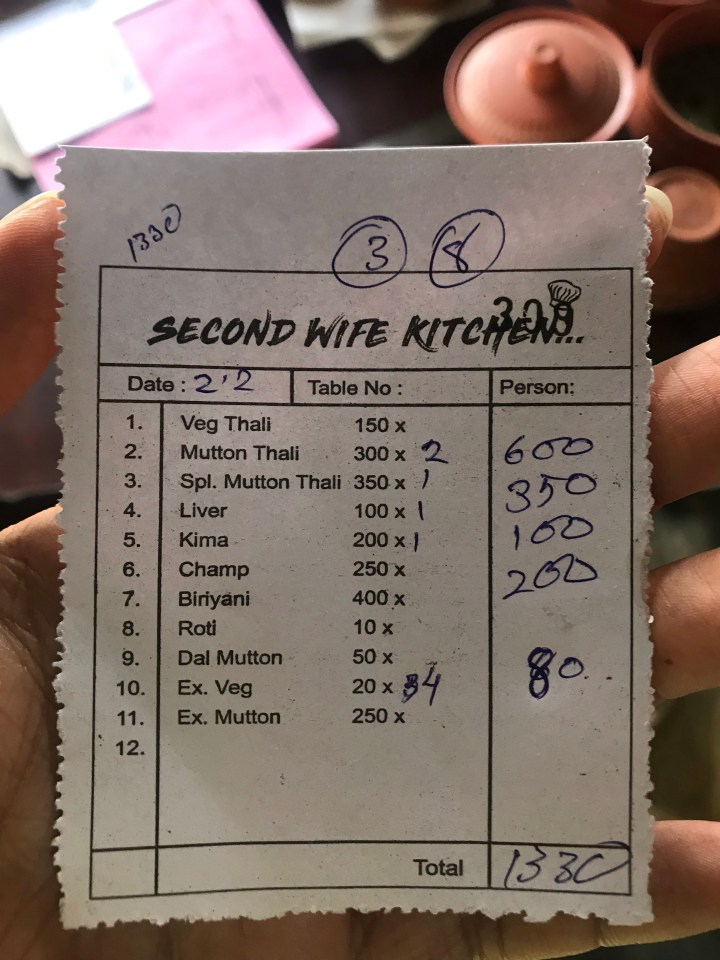 1330
3 8
309
SECOND WIFE KITCHEN...
Date : 2'2 Table No : Person:
1. Veg Thali 150 x
2. Mutton Thali 300 x 2 600
3. Spl. Mutton Thali 350 x 1 350
4. Liver 100 x 1 100
5. Kima 200 x 1 200
6. Champ 250 x
7. Biriyani 400 x
8. Roti 10 x
9. Dal Mutton 50 x
10. Ex. Veg 20 x 4 80
11. Ex. Mutton 250 x
12.
Total 1330